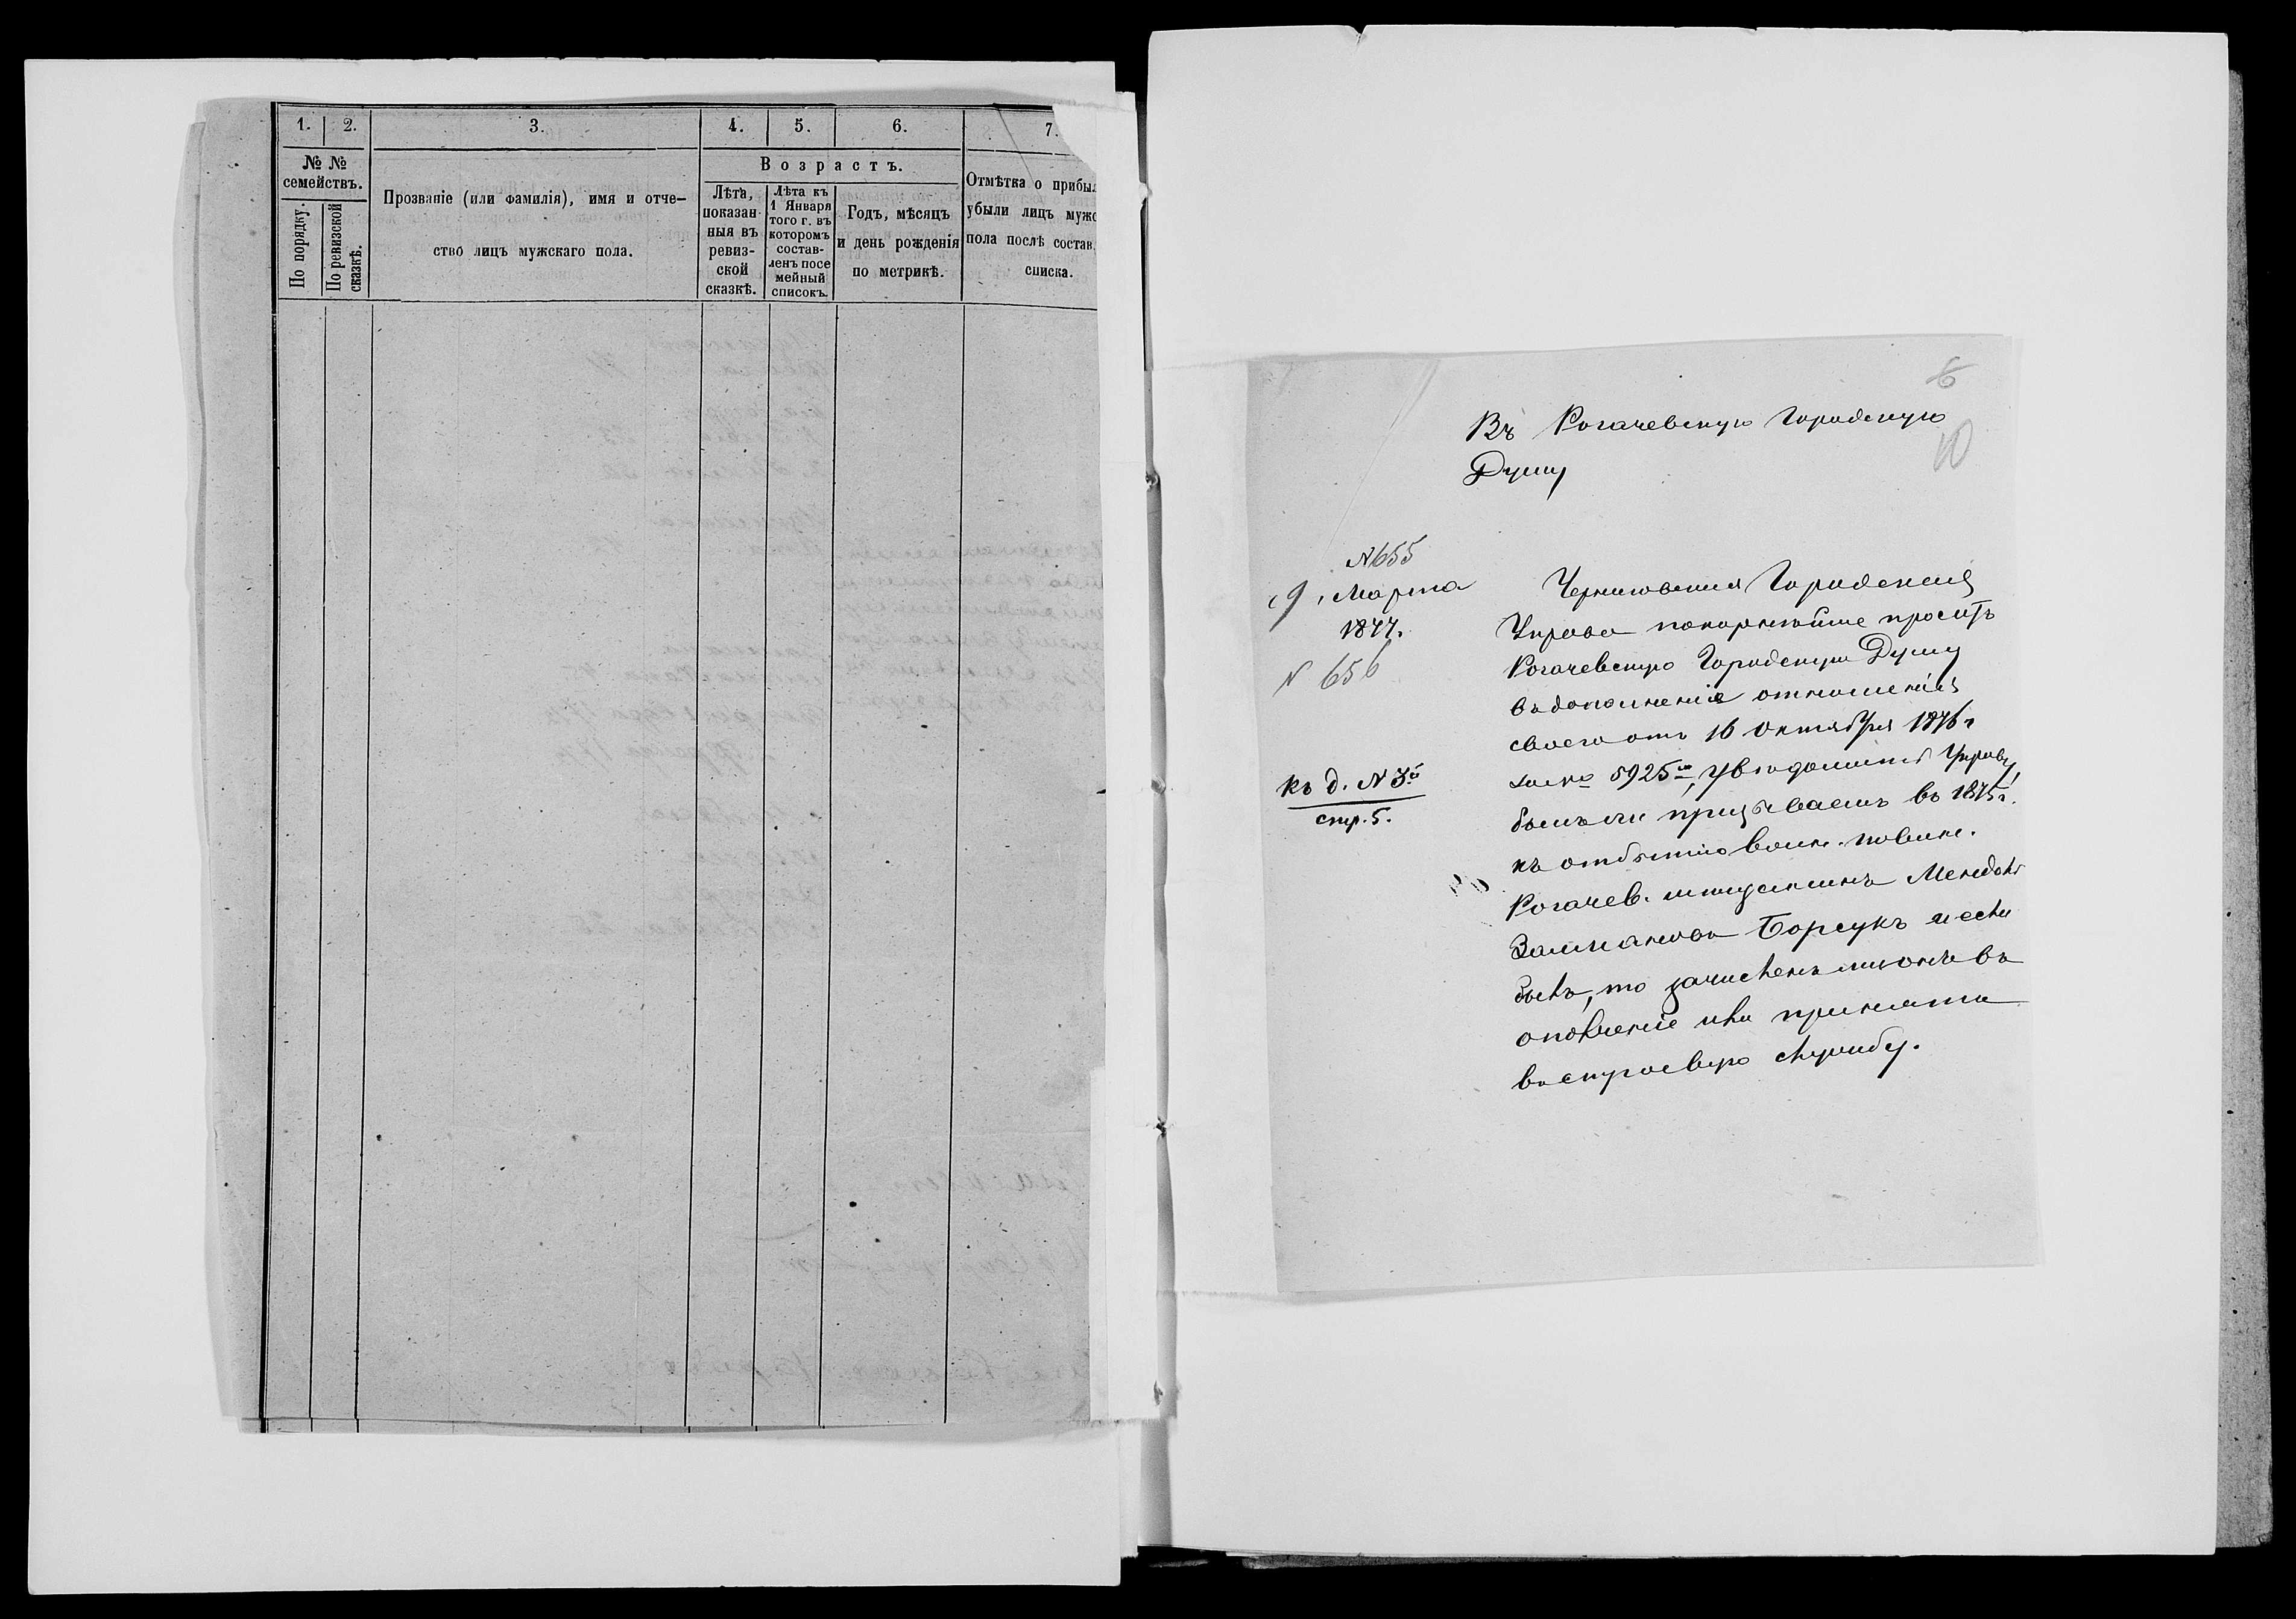 1.
2.
3.
4.
5.
6.
7.
№ №
семействъ.
По порядку.
По ревизской
сказкѣ.
Прозваніе (или фамилія), имя и отче-
ство лицъ мужскаго пола.
Возрастъ.
Лѣта,
показан-
ныя въ
ревиз-
ской
сказкѣ.
Лѣта къ
1 Января
того г. въ
которомъ
состав-
ленъ посе
мейный
списокъ.
Годъ, мѣсяцъ
и день рожденія
по метрикѣ.
Отмѣтка о прибы
убыли лицъ мужс
пола послѣ состав
списка.
6
10
Въ Рогачевскую Городскую
Думу
№ 655
9 Марта
1877.
№ 656
къ д. № 3
стр. 5.
Черниговская Городская
Управа покорнѣйше проситъ
Рогачевскую Городскую Думу
въ дополненіе отношенія
своего отъ 16 Октября 1876 г
за № 5925, увѣдомить Управу
былъ ли призываемъ въ 1875 г.
къ отбытію воин. повин.
Рогачев. мѣщанинъ Мендель
Залмановъ Борсукъ и если
былъ, то зачисленъ ли онъ въ
ополченіе или принятъ
въ строевую службу.